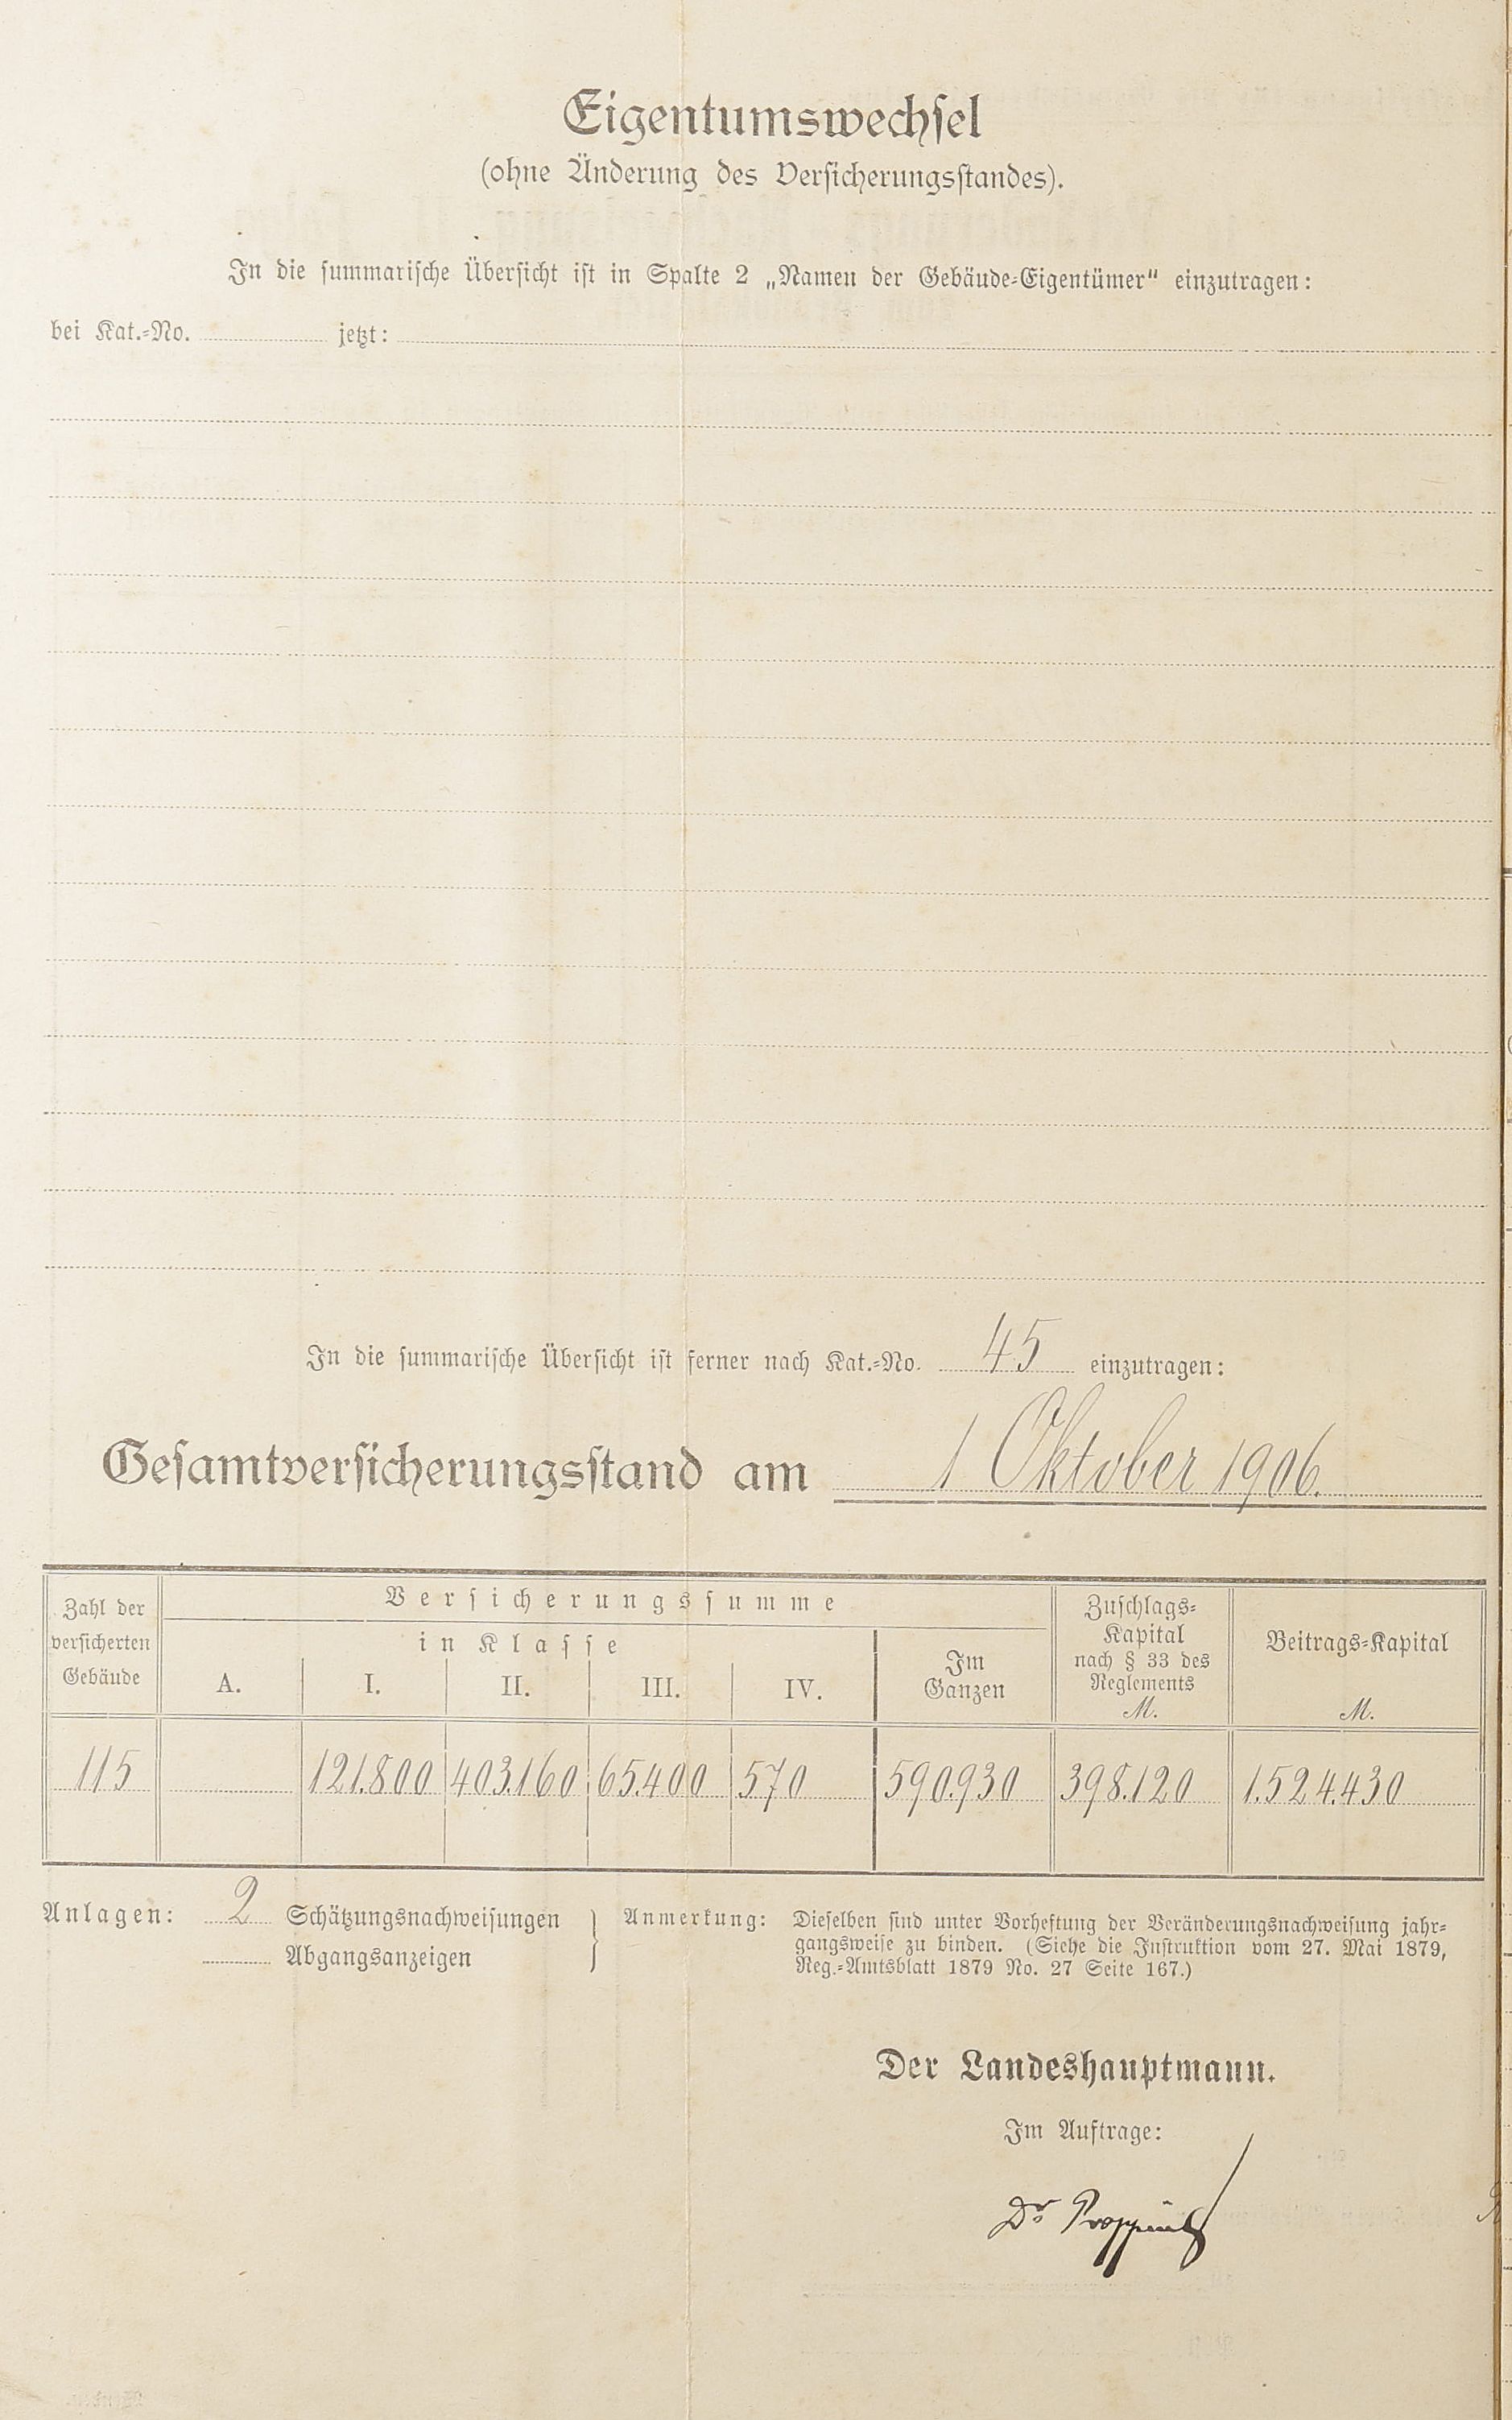 Eigentumswechsel
(ohne Änderung des Versicherungsstandes).
In die summarische Übersicht ist in Spalte 2 „Namen der Gebäude-Eigentümer“ einzutragen:
bei Kat.-No. jetzt:
In die summarische Übersicht ist ferner nach Kat.-No. 45 einzutragen:
Gesamtversicherungsstand am 1 Oktober 1906.
Zahl der versicherten Gebäude
Versicherungssumme
in Klasse
A. I. II. III. IV.
Im Ganzen
Zuschlags-Kapital nach § 33 des Reglements M.
Beitrags-Kapital M.
115 121.800 403.160 65.400 570 590.930 398.120 1.524.430
Anlagen: 2 Schätzungsnachweisungen
Abgangsanzeigen
Anmerkung: Dieselben sind unter Vorheftung der Veränderungsnachweisung jahr-
gangsweise zu binden. (Siehe die Instruktion vom 27. Mai 1879,
Reg.-Amtsblatt 1879 No. 27 Seite 167.)
Der Landeshauptmann.
Im Auftrage:
Dr